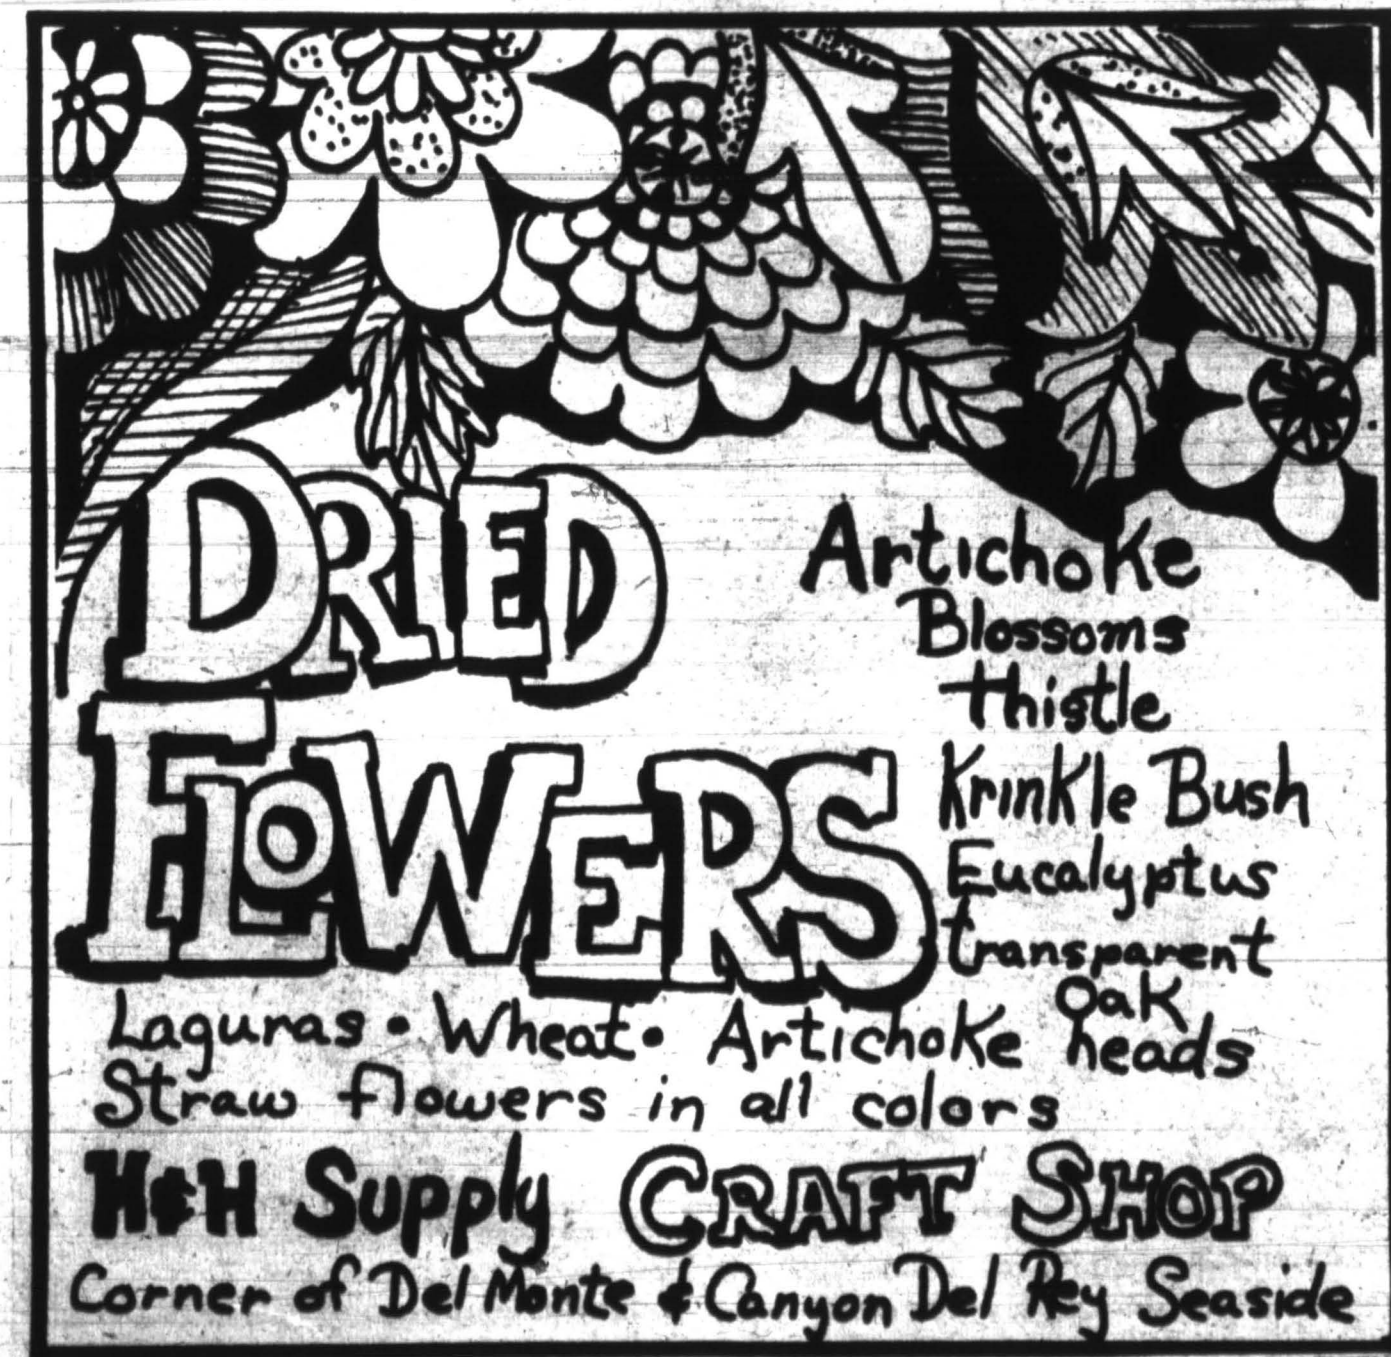 DRIED
FLOWERS
Artichoke
Blossoms
thistle
Krinkle Bush
Eucalyptus
transparent
oak
Laguras • Wheat • Artichoke heads
Straw flowers in all colors
H&H Supply CRAFT SHOP
Corner of Del Monte & Canyon Del Rey Seaside